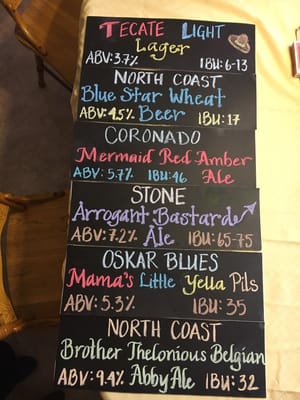 TECATE LIGHT
Lager
ABV: 3.7% IBU: 6-13
NORTH COAST
Blue Star Wheat
Beer
ABV: 4.5% IBU: 17
CORONADO
Mermaid Red Amber
Ale
ABV: 5.7% IBU: 46
STONE
Arrogant Bastard
Ale
ABV: 7.2% IBU: 65-75
OSKAR BLUES
Mama's Little Yella Pils
ABV: 5.3% IBU: 35
NORTH COAST
Brother Thelonious Belgian
ABV: 9.4% Abby Ale IBU: 32